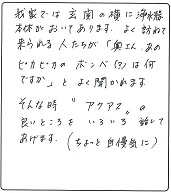 我家では玄関の横に浄水器
本体がおいてあります。よく訪れて
来られる人たちが「奥さん、あの
ピカピカのボンベ(?)は何
ですか」とよく聞かれます。
そんな時 "アクアス" の
良いところをいろいろ話して
あげます。(ちょっと自慢気に)